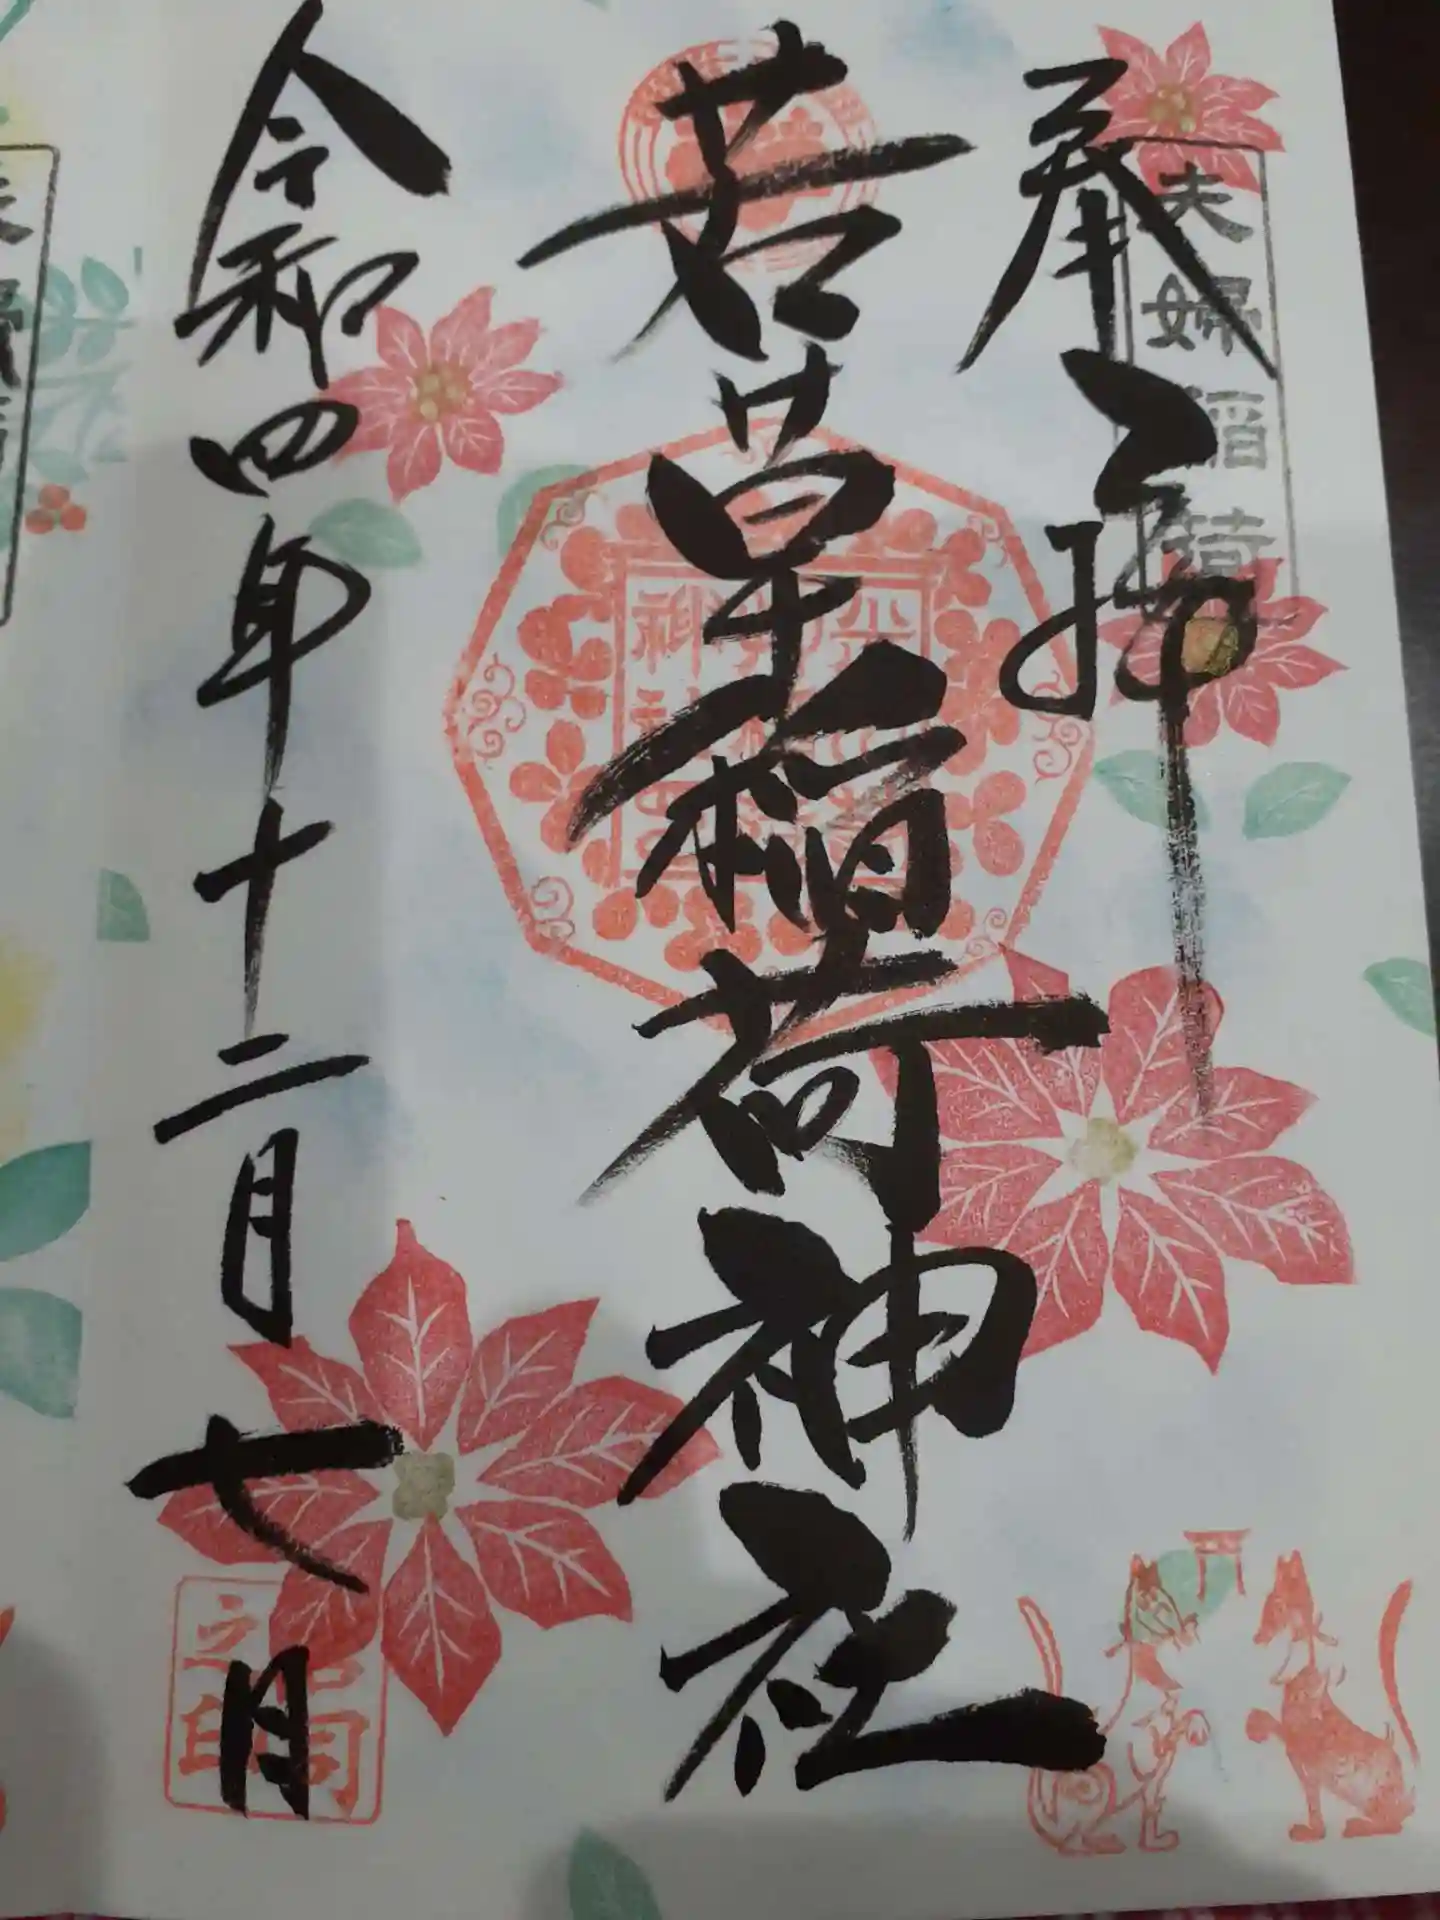 奉拝
夫婦稲荷
若草稲荷神社
令和四年十二月七日
宮司
之印